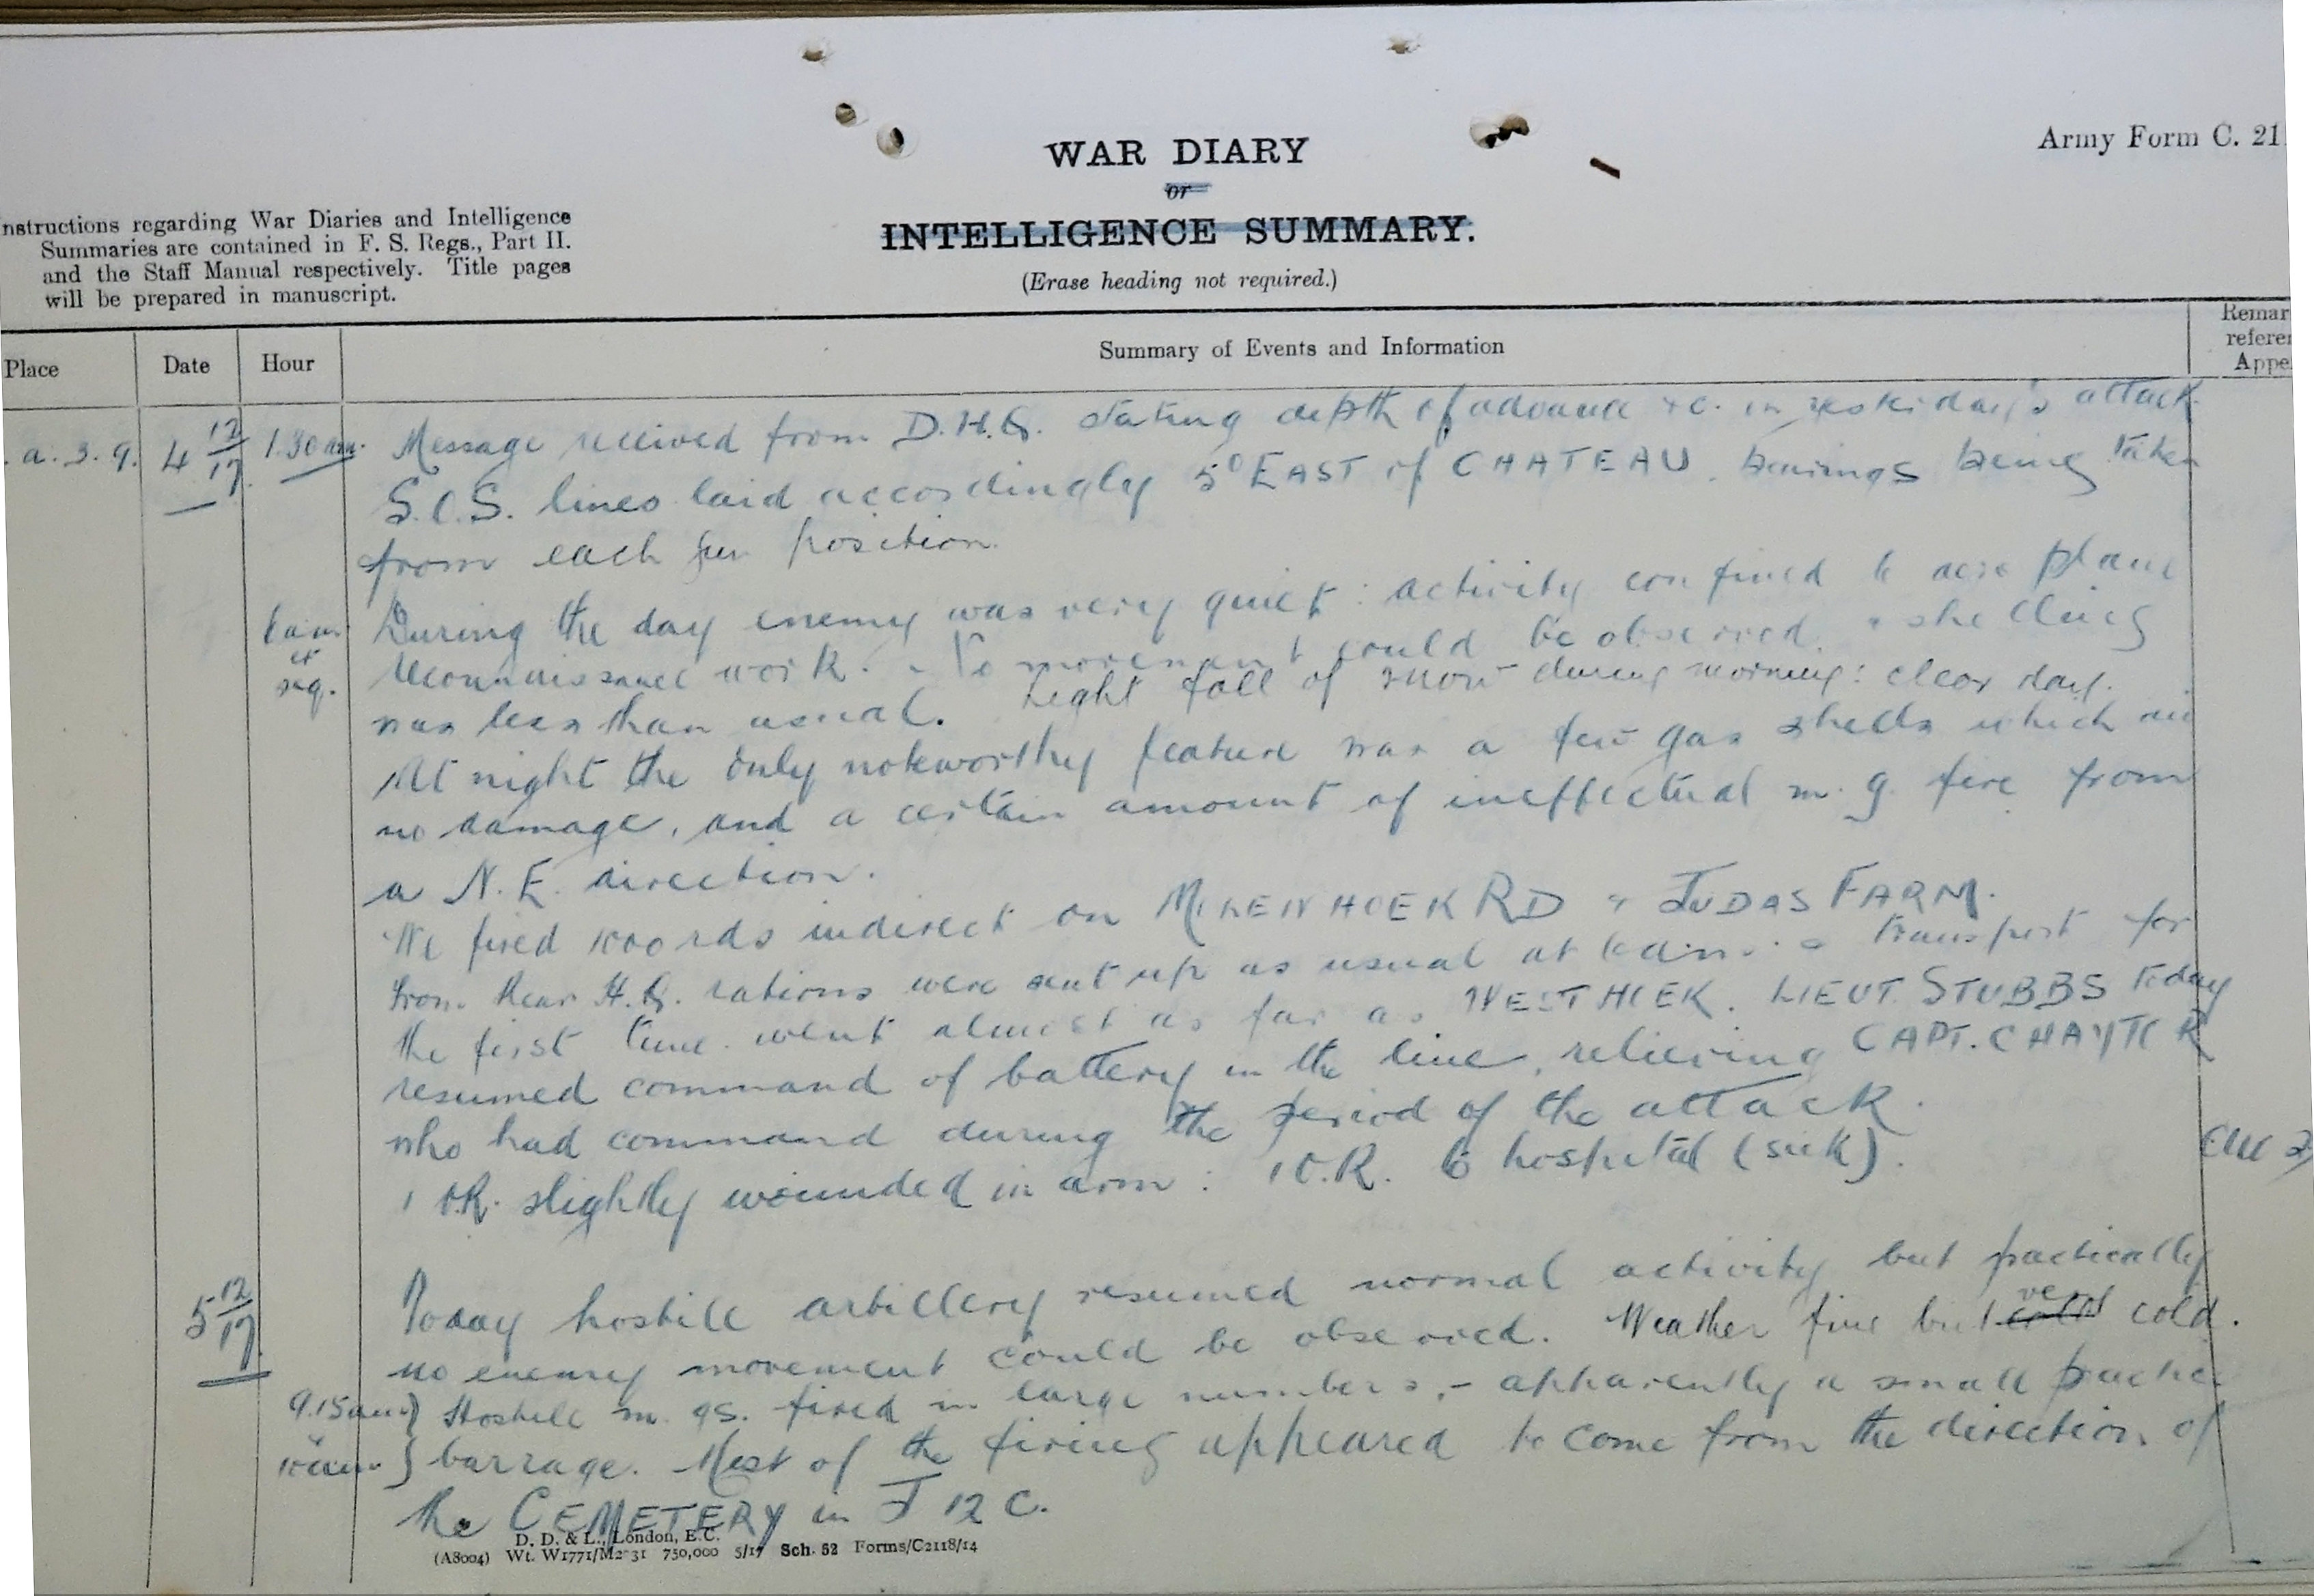 Army Form C. 21
WAR DIARY
or
INTELLIGENCE SUMMARY.
(Erase heading not required.)
nstructions regarding War Diaries and Intelligence
Summaries are contained in F. S. Regs., Part II.
and the Staff Manual respectively. Title pages
will be prepared in manuscript.
Place Date Hour Summary of Events and Information
Remar
refere
Appe
.a.3.9. 4 12/17 1.30 am. Message received from D.H.Q. stating depth of advance &c. in yesterday's attack.
S.O.S. lines laid accordingly 5° EAST of CHATEAU. bearings being taken
from each gun position.
During the day enemy was very quiet: activity confined to aeroplane
et reconnaissance work. - No movement could be observed. & shelling
seq. was less than usual. Light fall of snow during morning: clear day.
At night the only noteworthy feature was a few gas shells which did
no damage, and a certain amount of ineffectual m.g. fire from
a N.E. direction.
We fired 1000 rds indirect on RD & JUDAS FARM.
From Rear H.Q. rations were sent up as usual at transport for
the first time went almost as far as WESTHOEK. LIEUT. STUBBS today
resumed command of battery in the line, relieving CAPT. CHAYTOR
who had command during the period of the attack.
1 O.R. slightly wounded in arm: 1 O.R. to hospital (sick).
5 12/17 Today hostile artillery resumed normal activity but practically
no enemy movement could be observed. Weather fine but very cold.
9.15am Hostile m.gs. fired in large numbers, - apparently a small practice
10am barrage. Most of the firing appeared to come from the direction of
the CEMETERY in J 12 C.
D. D. & L., London, E.C.
(A8004) Wt. W1771/M2 31 750,000 5/17 Sch. 52 Forms/C2118/14